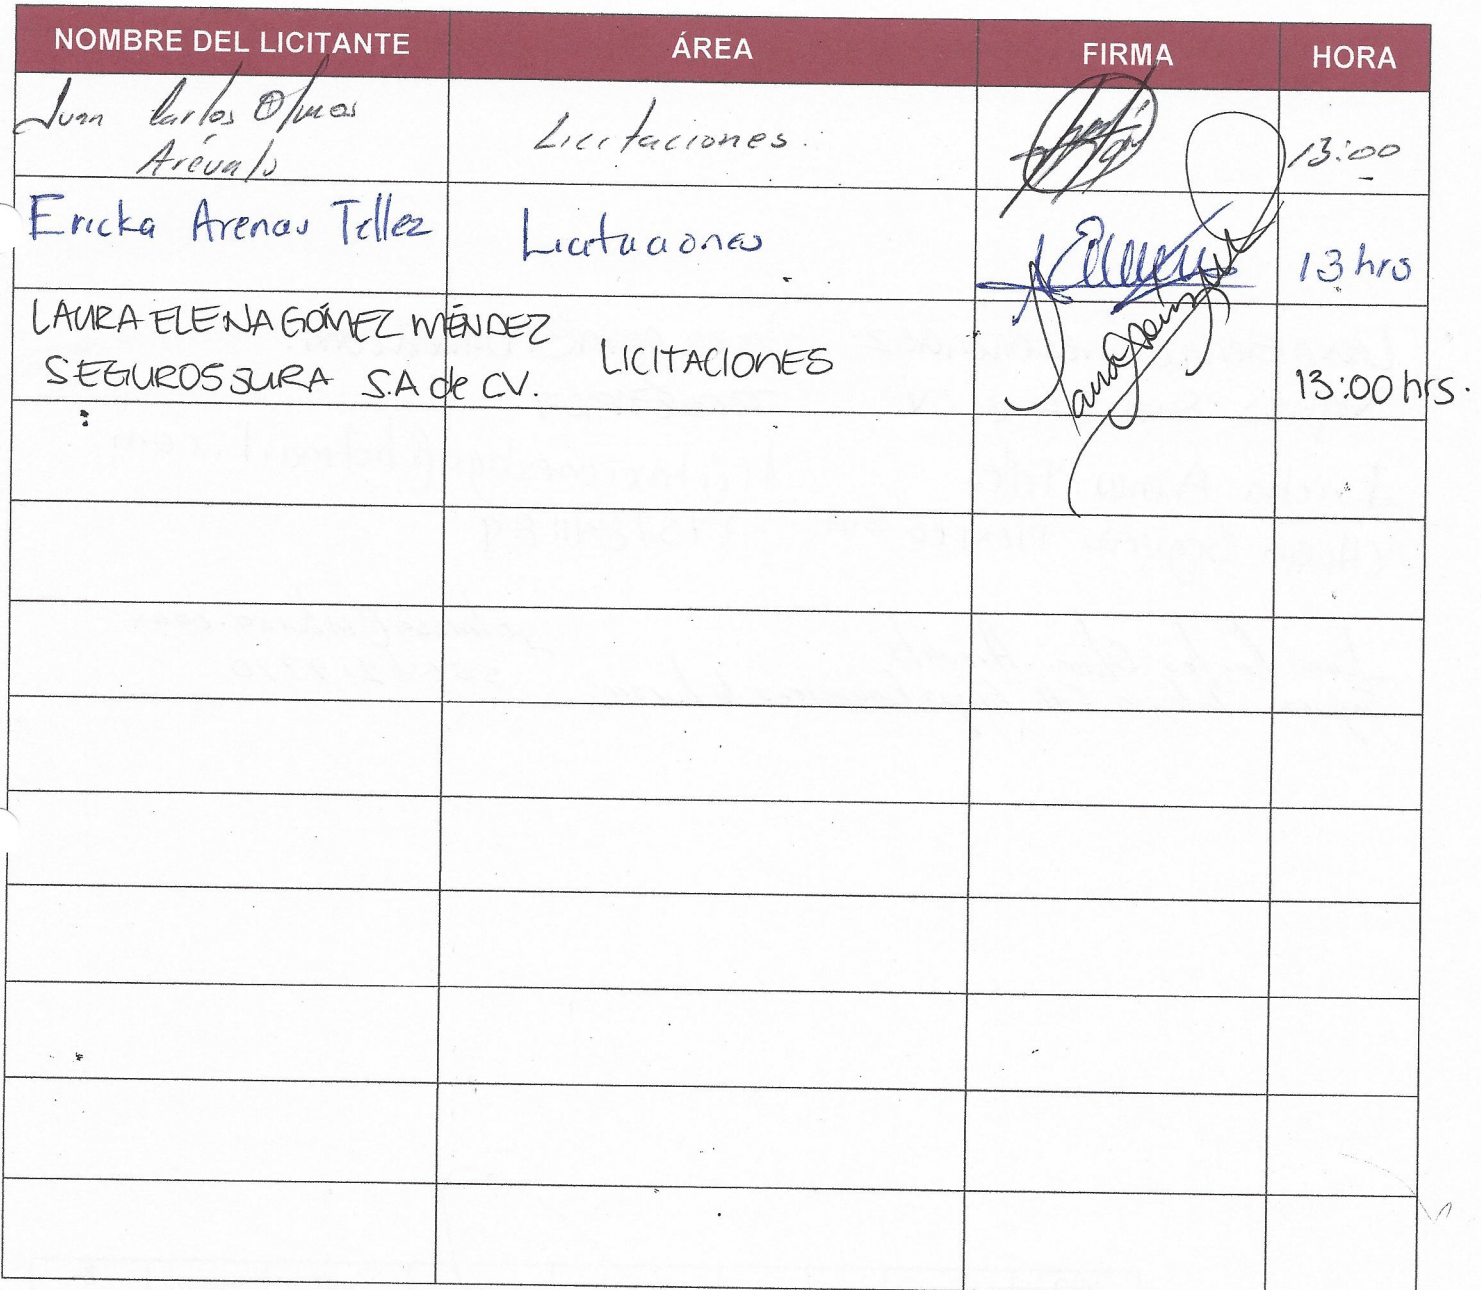 NOMBRE DEL LICITANTE ÁREA FIRMA HORA
Juan Carlos Olmos
Arévalo Licitaciones. 13:00
Ericka Arenas Tellez Licitaciones 13 hrs
LAURA ELENA GÓMEZ MÉNDEZ
SEGUROS SURA S.A de CV. LICITACIONES 13:00 hrs.